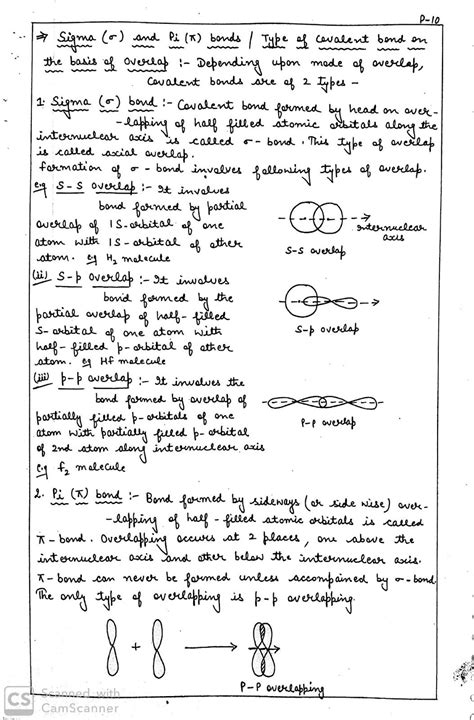 P-10
⇒ Sigma (σ) and Pi (π) bonds / Type of Covalent bond on
the basis of Overlap :- Depending upon mode of overlap,
Covalent bonds are of 2 types -
1. Sigma (σ) bond :- Covalent bond formed by head on over-
-lapping of half filled atomic orbitals along the
internuclear axis is called σ-bond. This type of overlap
is called axial overlap.
Formation of σ-bond involves following types of overlap.
S-S overlap :- It involves
bond formed by partial
overlap of 1S-orbital of one
atom with 1S-orbital of other
atom. eg H₂ molecule
Internuclear
axis
S-S overlap
(ii) S-p overlap :- It involves
bond formed by the
partial overlap of half-filled
S-orbital of one atom with
half-filled p-orbital of other
atom. eg Hf molecule
S-p overlap
(iii) p-p overlap :- It involves the
bond formed by overlap of
partially filled p-orbitals of one
atom with partially filled p-orbital
of 2nd atom along internuclear axis
eg f₂ molecule
P-P overlap
2. Pi (π) bond :- Bond formed by sideways (or side wise) over-
-lapping of half-filled atomic orbitals is called
π-bond. Overlapping occurs at 2 places, one above the
internuclear axis and other below the internuclear axis.
π-bond can never be formed unless accompained by σ-bond
The only type of overlapping is p-p overlapping.
+
P-P overlapping
CS Scanned with
CamScanner